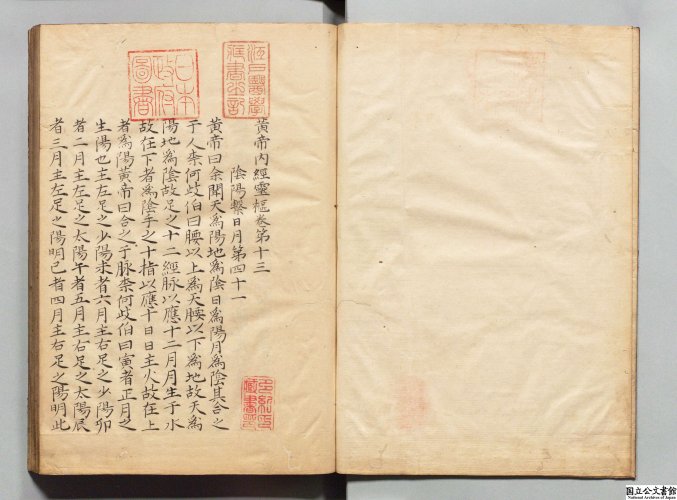 黃帝內經靈樞卷第十三
陰陽繫日月第四十一
黃帝曰余聞天為陽地為陰日為陽月為陰其合之
于人柰何歧伯曰腰以上為天腰以下為地故天為
陽地為陰故足之十二經脉以應十二月月生于水
故在下者為陰手之十指以應十日日主火故在上
者為陽黃帝曰合之于脉柰何歧伯曰寅者正月之
生陽也主左足之少陽未者六月主右足之少陽卯
者二月主左足之太陽午者五月主右足之太陽辰
者三月主左足之陽明巳者四月主右足之陽明此
江戶醫學
藏書之記
日本
政府
圖書
國立公文書館
National Archives of Japan